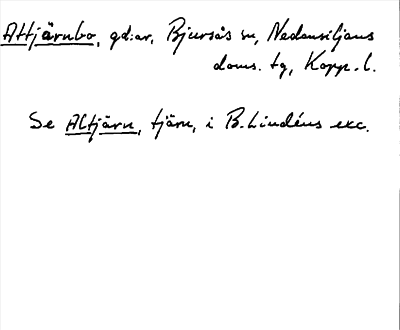 Altjärnbo, gd:ar, Bjursås sn, Nedansiljans
doms. tg, Kopp. l.
Se Altjärn, tjärn, i B. Lindéns exc.